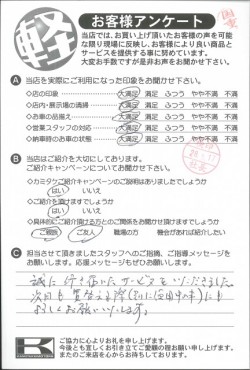 軽
お客様アンケート
当店では、お買い上げ頂いたお客様の声を可能
な限り現場に反映し、お客様により良い商品と
サービスを提供する事に努めています。
大変お手数ですが是非お声をお聞かせ下さい。
A 当店を実際にご利用になった印象をお聞かせ下さい。
◇店の印象 大満足 満足 ふつう やや不満 不満
◇店内・展示場の清掃 大満足 満足 ふつう やや不満 不満
◇お車の品揃え 大満足 満足 ふつう やや不満 不満
◇営業スタッフの対応 大満足 満足 ふつう やや不満
◇納車時のお車の状態 大満足 満足 ふつう やや不満
B 当店はご紹介を大切にしております。
ご紹介キャンペーンについてお聞かせ下さい。
◇カミタケご紹介キャンペーンのご説明はありましたでしょうか
はい いいえ
◇ご紹介を頂けますでしょうか
はい いいえ
◇具体的にご紹介頂ける方とのご関係をお聞かせ頂けますでしょうか
ご親戚 ご友人 職場の方 機会があれば紹介したい
C 担当させて頂きましたスタッフへのご指摘、ご指導メッセージを
お願いします。応援メッセージもぜひお願いします。
誠に行き届いたサービスをいただきました。
次回も買替える際
よろしくお願いいたします。
K
ご協力に心よりお礼を申し上げます。
今後とも宜しくお引き立てご愛顧の程お願い申し上げます。
またのご来店を心からお待ちしております。